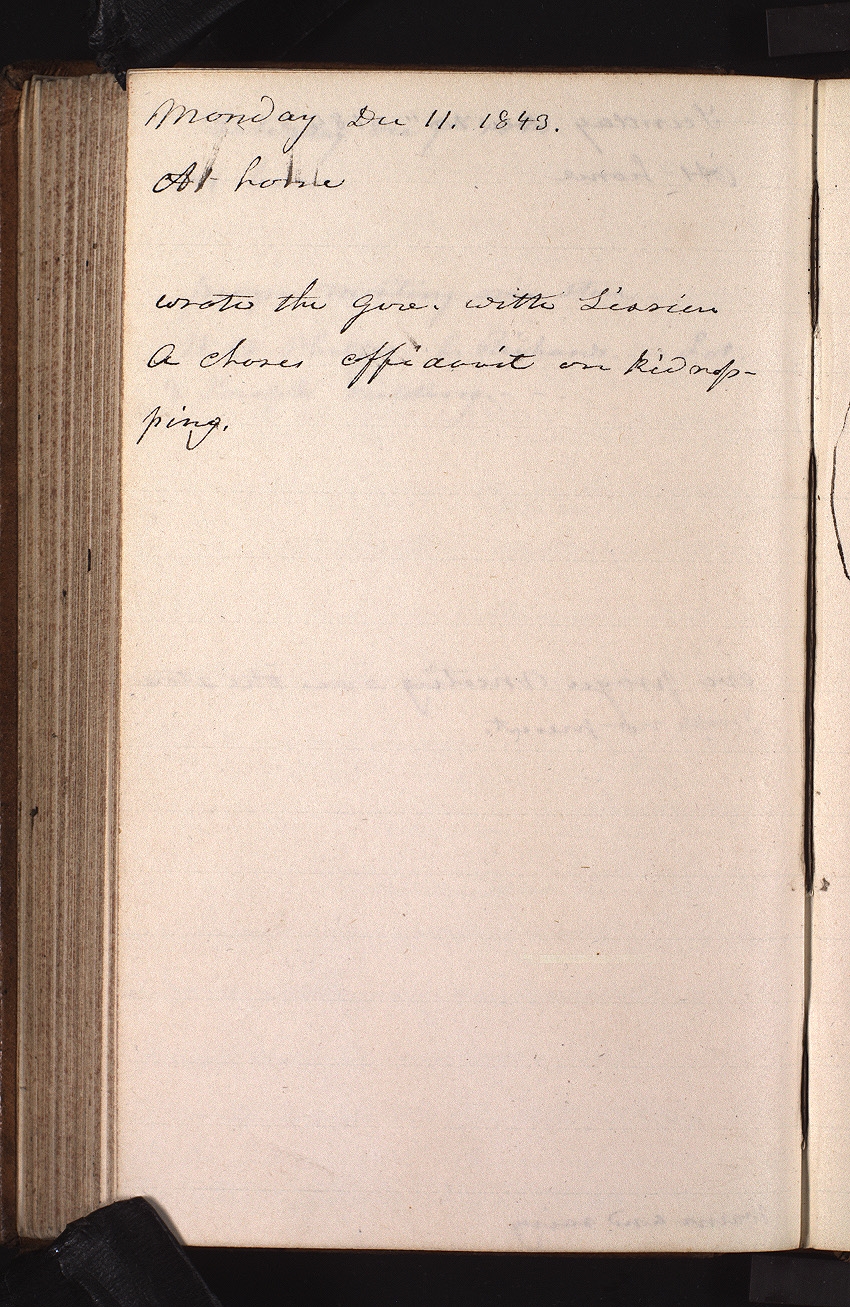 Monday Dec 11. 1843.
At home
wrote the Gov. with Sisson
A chases affidavit on kidnap-
ping.